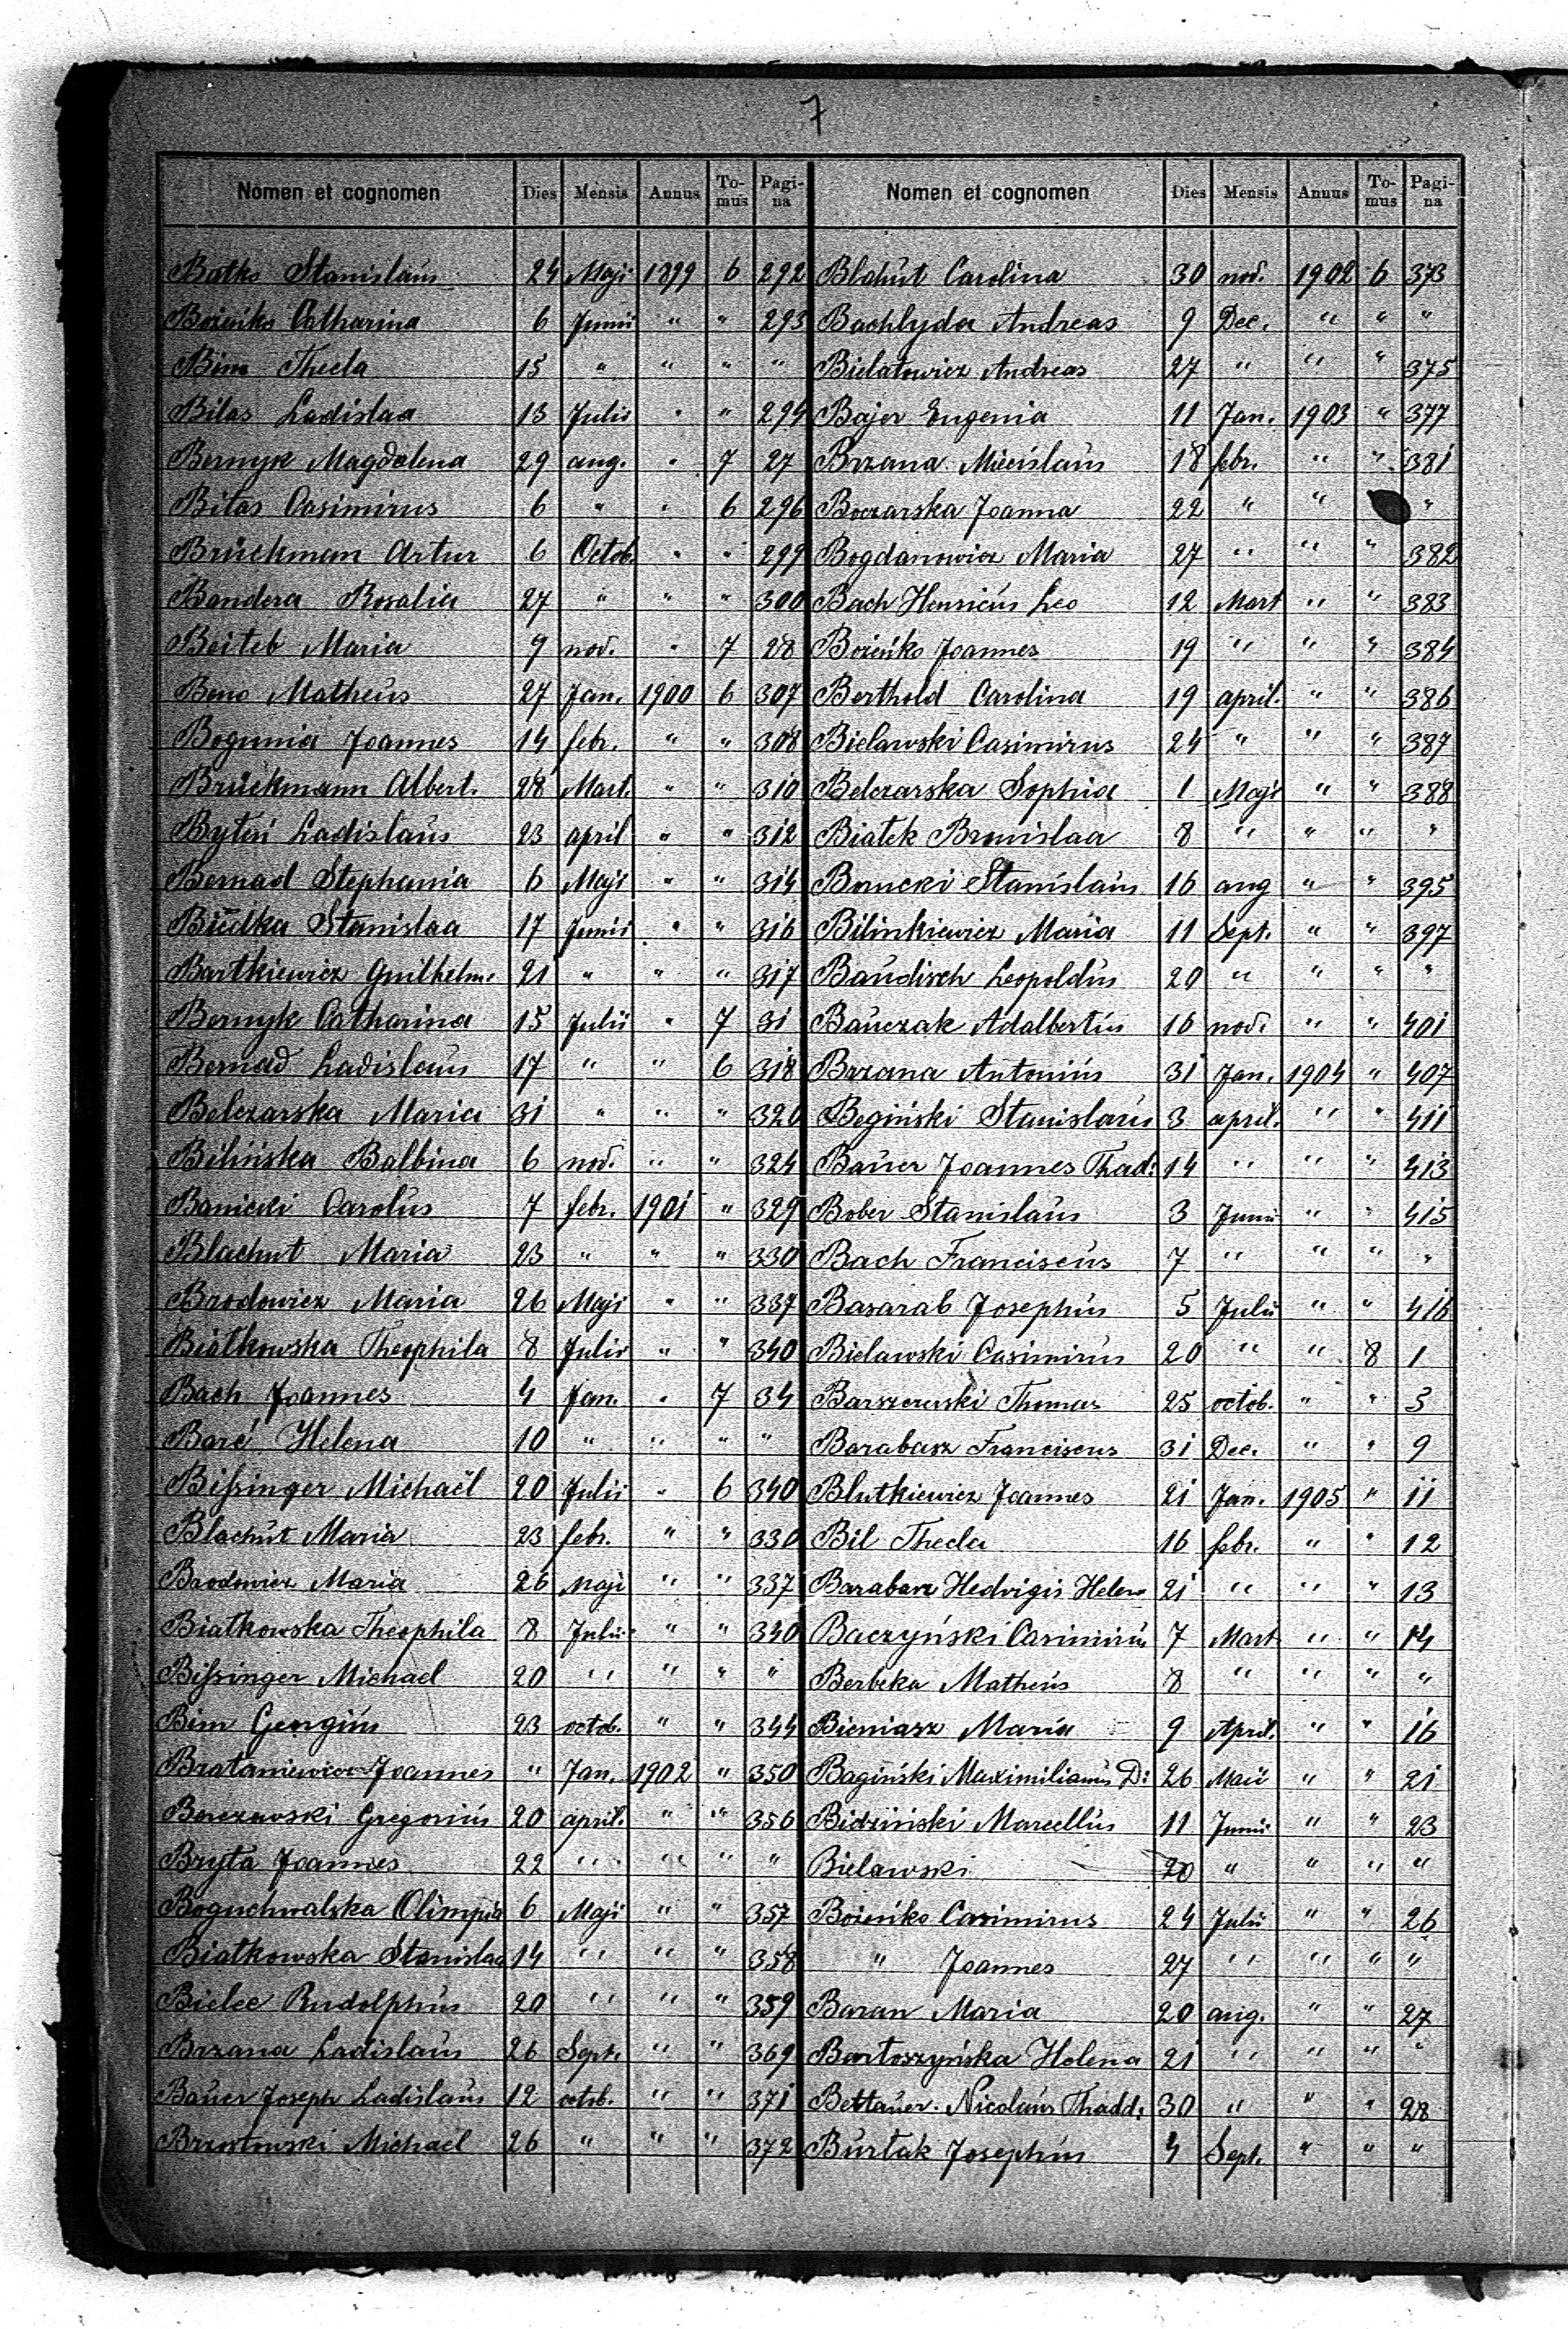 7
Nomen et cognomen Dies Mensis Annus Tomus Pagina Nomen et cognomen Dies Mensis Annus Tomus Pagina
Batko Stanislaus 24 Maji 1899 6 292
Bozieńko Catharina 6 Junii " " 293
Bim Thecla 15 " " " "
Bilas Ladislaa 13 Julii " " 294
Bernyk Magdalena 29 aug. " 7 27
Bilas Casimirus 6 " " 6 296
Brückman Artur 6 Octob. " " 299
Bandera Rosalia 27 " " " 300
Beiteb Maria 9 nov. " 7 28
Beno Matheus 27 Jan. 1900 6 307
Bogunia Joannes 14 febr. " " 308
Brückmann Albert. 28 Mart. " " 310
Ladislaus 23 april " " 312
Bernad Stephania 6 Maji " " 314
Stanislaa 17 Junii " " 316
Bartkiewicz Guilhelm. 21 " " " 317
Bernyk Catharina 15 Julii " 7 31
Bernad Ladislaus 17 " " 6 318
Belczarska Maria 31 " " " 320
Bilińska Balbina 6 nov. " " 324
Banicki Carolus 7 febr. 1901 " 329
Blachut Maria 23 " " " 330
Brodowicz Maria 26 Maji " " 337
Białkowska Theophila 8 Julii " " 340
Bach Joannes 4 Jan. " 7 34
Baré Helena 10 " " " "
Bissinger Michaël 20 Julii " 6 340
Blachut Maria 23 febr. " " 330
Brodowicz Maria 26 Maji " " 337
Białkowska Theophila 8 Julii " " 340
Bissinger Michael 20 " " " "
Bim Georgius 23 octob. " " 344
Brataniewicz Joannes " Jan. 1902 " 350
Berezowski Gregorius 20 april. " " 356
Bryła Joannes 22 " " " "
Boguchwalska Olimpia 6 Maji " " 357
Białkowska Stanislaa 14 " " " 358
Bielec Rudolphus 20 " " " 359
Brzana Ladislaus 26 Sept. " " 369
Bauer Joseph Ladislaus 12 octob. " " 371
Brzostowski Michaël 26 " " " 372
Blahut Carolina 30 nov. 1902 6 373
Bachlyda Andreas 9 Dec. " " "
Bielatowicz Andreas 27 " " " 375
Bajer Eugenia 11 Jan. 1903 " 377
Brzana Miecislaus 18 febr. " " 381
Boczarska Joanna 22 " " "
Bogdanowicz Maria 27 " " " 382
Bach Henricus Leo 12 Mart " " 383
Bozieńko Joannes 19 " " " 384
Berthold Carolina 19 april. " " 386
Bielawski Casimirus 24 " " " 387
Belczarska Sophia 1 Maji " " 388
Białek Bronislaa 8 " " " "
Borucki Stanislaus 16 aug " " 395
Bilinkiewicz Maria 11 Sept. " " 397
Baudisch Leopoldus 20 " " " "
Bauczak Adalbertus 16 nov. " " 401
Brzana Antonius 31 Jan. 1904 " 407
Begiński Stanislaus 3 april. " " 411
Bauer Joannes Thad: 14 " " " 413
Bober Stanislaus 3 Junii " " 415
Bach Franciscus 7 " " " "
Basarab Josephus 5 Julii " " 416
Bielawski Casimirus 20 " " 8 1
Barszczewski Thomas 25 octob. " " 5
Barabasz Franciscus 31 Dec. " " 9
Blutkiewicz Joannes 21 Jan. 1905 " 11
Bil Thecla 16 febr. " " 12
Barabasz Hedvigis Helena 21 " " " 13
Baczyński Casimirus 7 Mart " " 14
Berbeka Matheus 8 " " " "
Bieniasz Maria 9 April. " " 16
Bagiński Maximilianus D: 26 Maii " " 21
Bidziński Marcellus 11 Junii " " 23
Bielawski 20 " " " "
Bozieńko Casimirus 24 Julii " " 26
" Joannes 27 " " " "
Baran Maria 20 aug. " " 27
Bartoszyńska Helena 21 " " " "
Bettauer Nicolaus Thadd: 30 " " " 28
Burtak Josephus 4 Sept. " " "